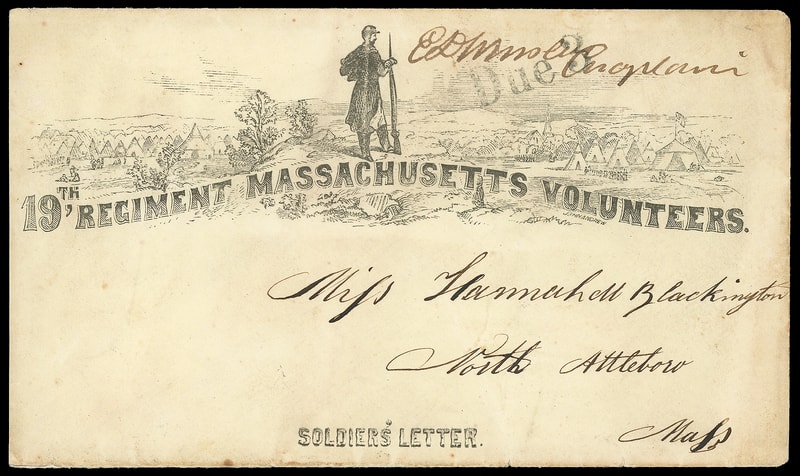 E D Winslow Chaplain
Due 3
19TH, REGIMENT MASSACHUSETTS VOLUNTEERS.
Miss Hannah M Blackington
North Attleboro
Mass
SOLDIER'S LETTER.